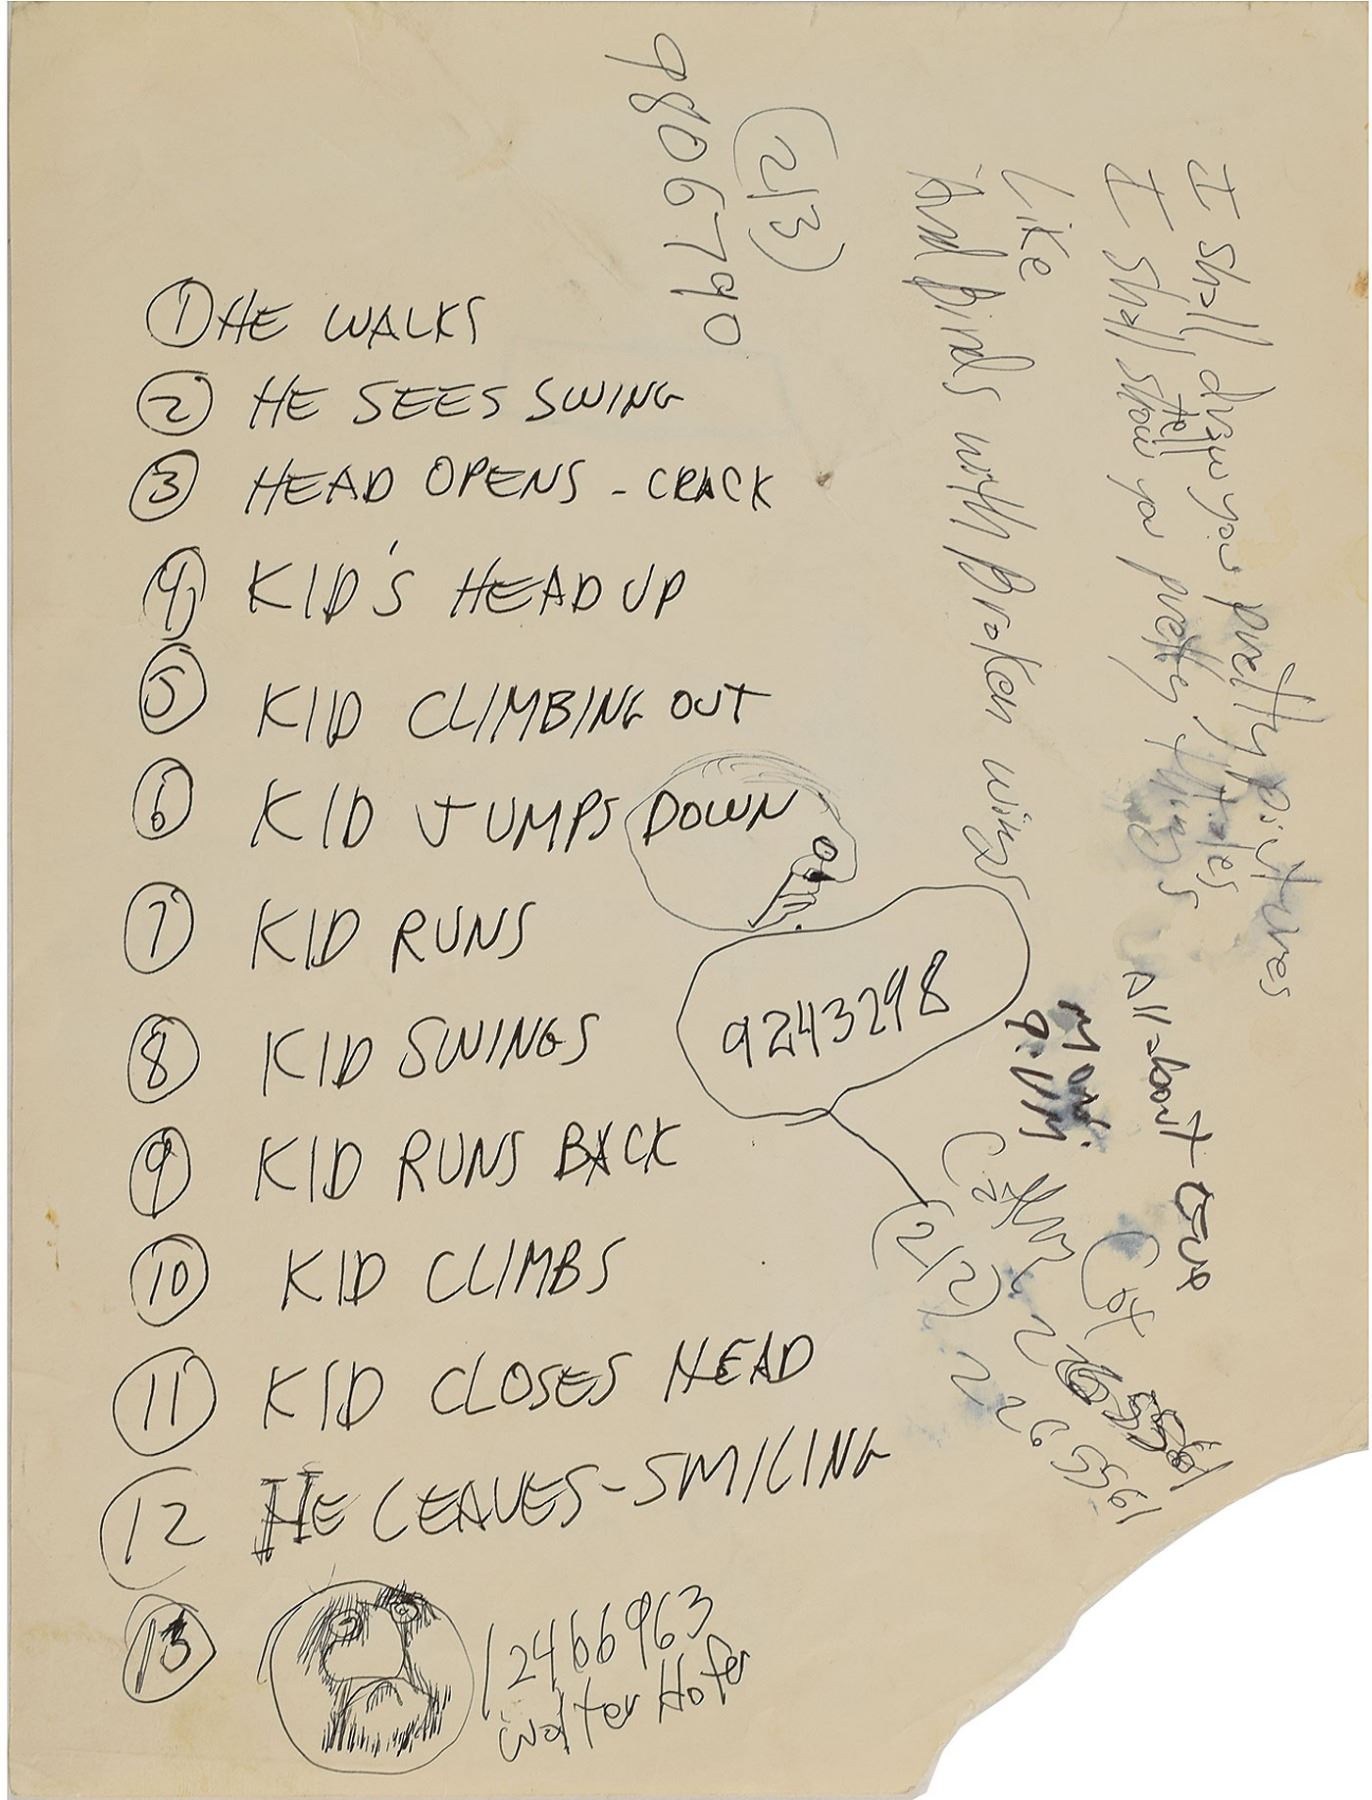 ① HE WALKS
② HE SEES SWING
③ HEAD OPENS - CRACK
④ KID'S HEAD UP
⑤ KID CLIMBING OUT
⑥ KID JUMPS DOWN
⑦ KID RUNS
⑧ KID SWINGS
⑨ KID RUNS BACK
⑩ KID CLIMBS
⑪ KID CLOSES HEAD
⑫ HE LEAVES - SMILING
⑬
12466963
Walter Hofer
9243298
(212)
(213)
9806790
I shall draw you pretty pictures
I shall show you pretty things
tell
tales
All about
Like
And Birds with Broken wings
2265561